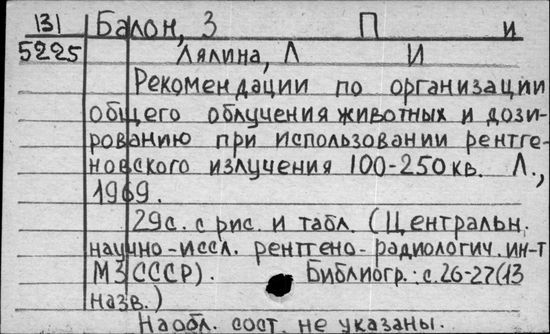 131 Балон, З П и
5225 Лялина, Л И
Рекомендации по организации
общего облучения животных и дози-
рованию при использовании рентге-
новского излучения 100-250 кв. Л.,
1969.
29с. с рис. и табл. (Центральн.
научно-иссл. рентгено-радиологич. ин-т
МЗ СССР). Библиогр.: с. 26-27 (13
назв.)
На обл. сост. не указаны.